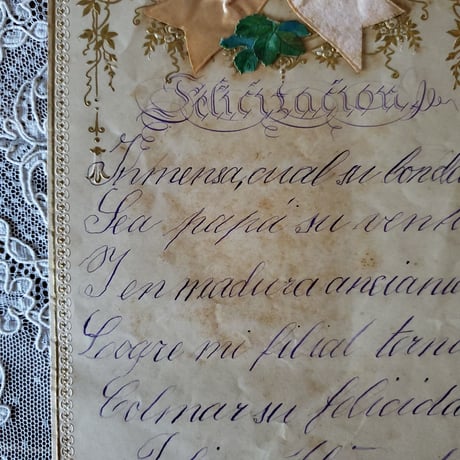 Felicitación
Inmensa, cual su bonda
Sea papá su vent
I en madura anciani
Logre mi filial tern
Colmar su felicida